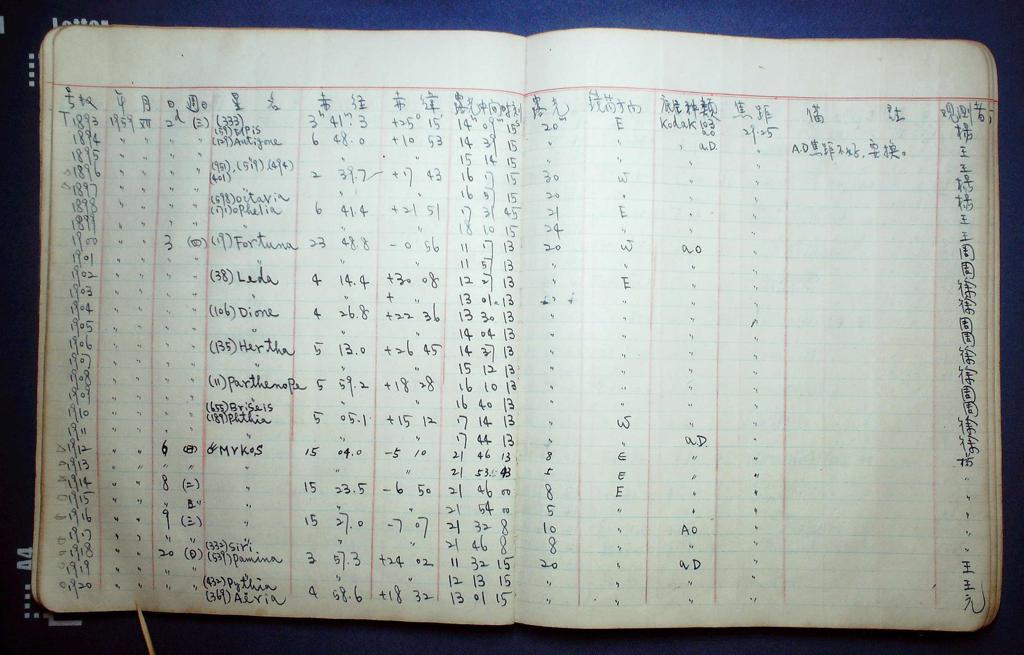 Letter
号数 年 月 日 週日 星名 赤经 赤纬 露光中间时刻 露光 镜筒方向 底片种类 焦距 備註 观测者
T1893 1959 XII 2d (三) (333) 3h 41m 3 +25° 15' 14h 09m 15s 20 E Kodak 103aO 29.25 杨
1894 〃 〃 〃 〃 (59)Elpis (129)Antigone 6 48.0 +10 53 14 39 15 〃 〃 〃 aD 〃 A.D焦距不好,要换。 王
1895 〃 〃 〃 〃 〃 〃 〃 15 14 15 〃 〃 〃 〃 王
1896 〃 〃 〃 〃 (951),(519),(494) (401) 2 39.7 +17 43 16 17 15 30 W 〃 〃 杨
1897 〃 〃 〃 〃 〃 〃 16 57 15 20 〃 〃 〃 杨
1898 〃 〃 〃 〃 (598)octavia (171)ophelia 6 41.4 +21 51 17 31 45 21 E 〃 〃 王
1899 〃 〃 〃 〃 〃 〃 〃 18 10 15 24 〃 〃 〃 王
1900 〃 〃 3 (四) (19)Fortuna 23 48.8 -0 56 11 17 13 20 W aO 〃 周
1901 〃 〃 〃 〃 〃 〃 〃 11 57 13 〃 〃 〃 〃 周
1902 〃 〃 〃 〃 (38)Leda 4 14.4 +30 08 12 27 13 〃 E 〃 〃 徐
1903 〃 〃 〃 〃 〃 〃 + 〃 13 01 13 〃 〃 〃 〃 徐
1904 〃 〃 〃 〃 (106)Dione 4 26.8 +22 36 13 30 13 〃 〃 〃 〃 周
1905 〃 〃 〃 〃 〃 〃 〃 14 04 13 〃 〃 〃 〃 周
1906 〃 〃 〃 〃 (135)Hertha 5 13.0 +26 45 14 37 13 〃 〃 〃 〃 徐
1907 〃 〃 〃 〃 〃 〃 〃 15 12 13 〃 〃 〃 〃 徐
1908 〃 〃 〃 〃 (11)Parthenope 5 59.2 +18 28 16 10 13 〃 〃 〃 〃 周
1909 〃 〃 〃 〃 〃 〃 〃 16 40 13 〃 〃 〃 〃 周
1910 〃 〃 〃 〃 (655)Briseis (189)Phthia 5 05.1 +15 12 17 14 13 〃 W 〃 〃 徐
1911 〃 〃 〃 〃 〃 〃 〃 17 44 13 〃 〃 aD 〃 徐
1912 〃 〃 6 (日) Mrkos 15 04.0 -5 10 21 46 13 8 E 〃 〃 杨
1913 〃 〃 〃 〃 〃 〃 〃 21 53 43 5 E 〃 〃 〃
1914 〃 〃 8 (二) 〃 15 23.5 -6 50 21 46 00 8 E 〃 〃 〃
1915 〃 〃 〃 〃 〃 〃 〃 21 54 00 5 〃 〃 〃 〃
1916 〃 〃 9 (三) 〃 15 27.0 -7 07 21 32 8 10 〃 AO 〃 〃
1917 〃 〃 〃 〃 〃 〃 〃 21 46 8 8 〃 〃 〃 〃
1918 〃 〃 20 (日) (332)Siri (539)Pamina 3 57.3 +24 02 11 32 15 20 〃 aD 〃 王
1919 〃 〃 〃 〃 〃 〃 〃 12 13 15 〃 〃 〃 〃 王
1920 〃 〃 〃 〃 (432)Pythia (369)Aëria 4 58.6 +18 32 13 01 15 〃 〃 〃 〃 元
A4